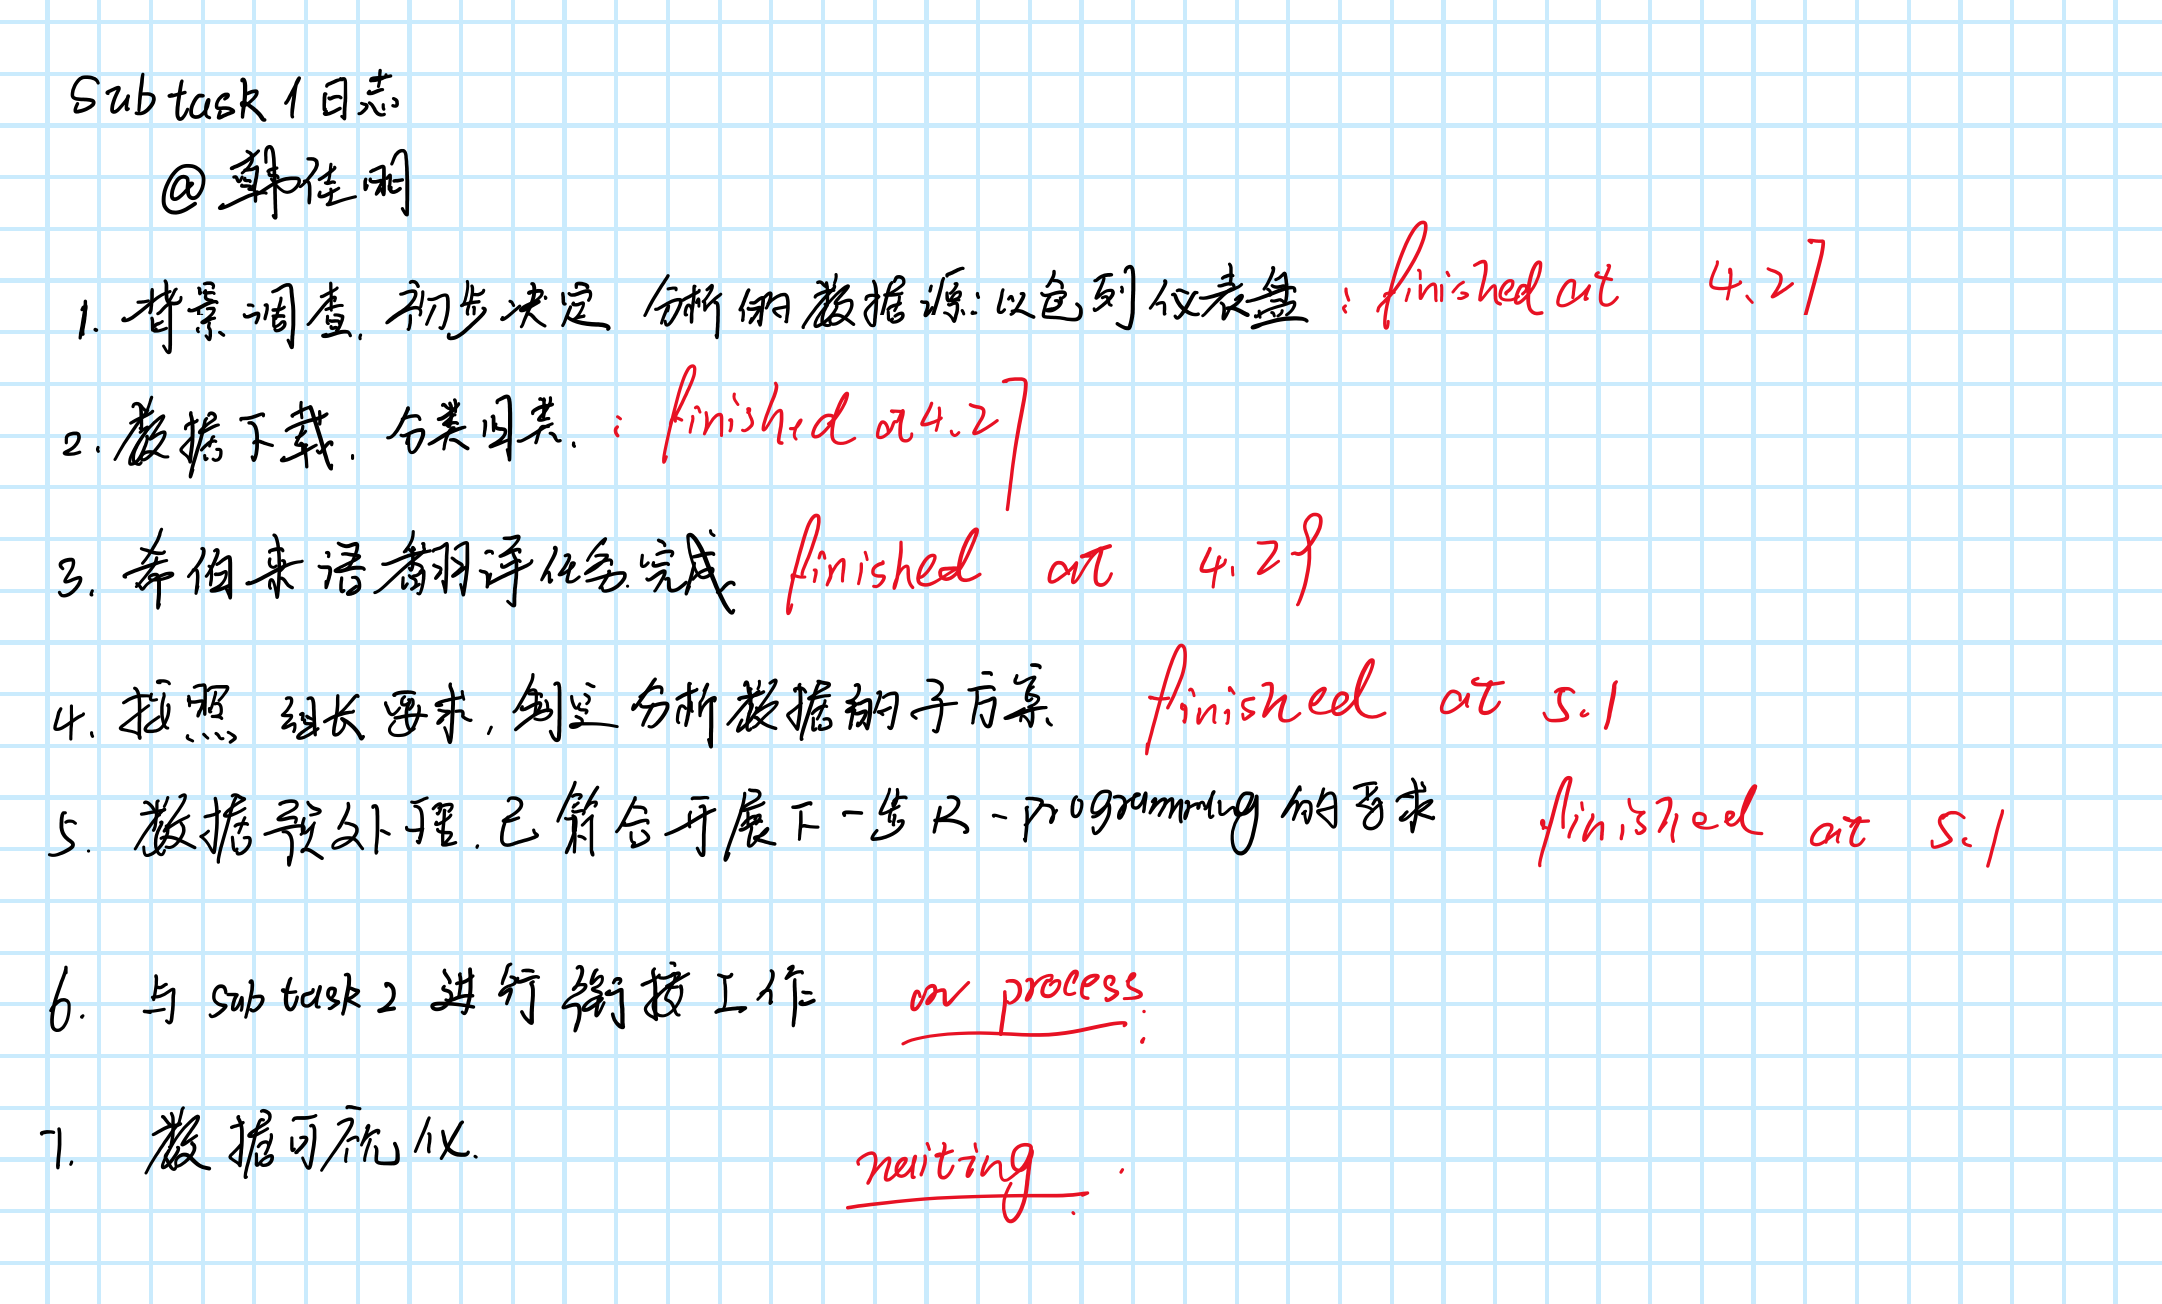 Subtask 1 日志
@韩佳明
1. 背景调查, 初步决定 分析的数据源: 以色列仪表盘 : finished at 4.27
2. 数据下载, 分类归类. : finished at 4.27
3. 希伯来语翻译任务完成 finished at 4.29
4. 按照 组长要求, 制定分析数据的子方案 finished at 5.1
5. 数据预处理, 已符合开展下一步 R-programming 的要求 finished at 5.1
6. 与 subtask 2 进行衔接工作 on process.
7. 数据可视化. waiting.